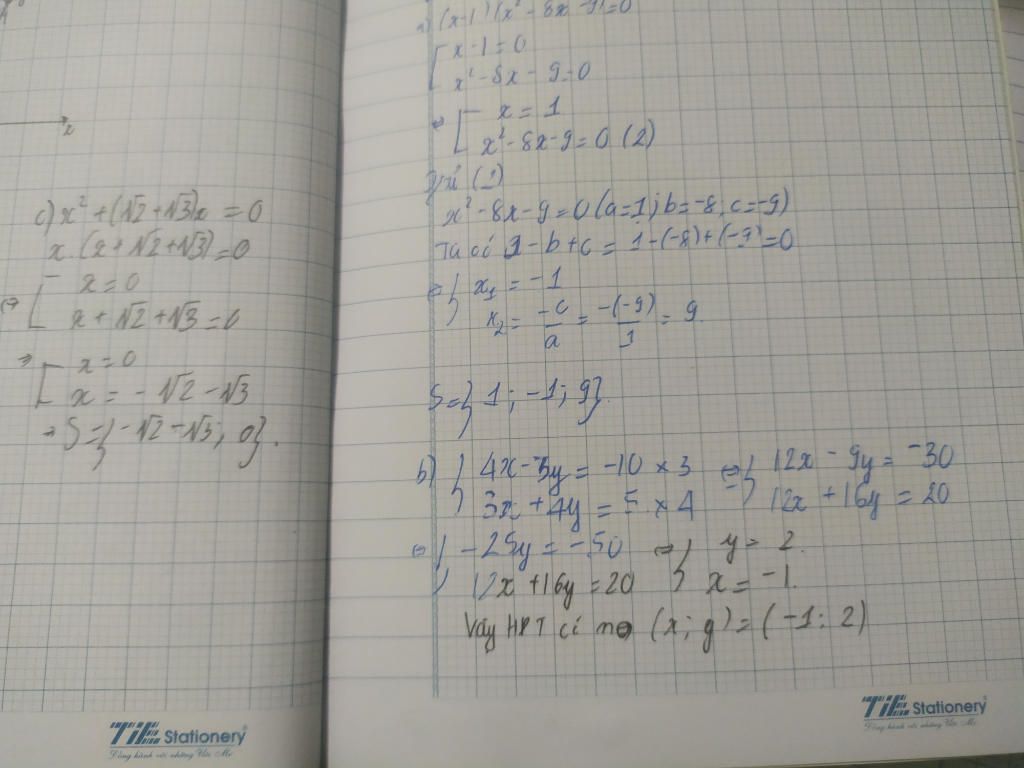 x
c) x² + (√2 + √3)x = 0
x.(x + √2 + √3) = 0
⇔ [ x = 0
x + √2 + √3 = 0
⇒ [ x = 0
x = -√2 - √3
→ S = {-√2 - √3; 0}.
TiE Stationery
Đồng hành với những Ước Mơ
a) (x-1)(x² - 8x - 9) = 0
[ x - 1 = 0
x² - 8x - 9 = 0
⇔ [ x = 1
x² - 8x - 9 = 0 (2)
(2)
x² - 8x - 9 = 0 (a = 1; b = -8, c = -9)
Ta có a - b + c = 1 - (-8) + (-9) = 0
⇔ { x₁ = -1
x₂ = -c/a = -(-9)/1 = 9.
S = {1; -1; 9}.
b) { 4x - 3y = -10 × 3 ⇔ { 12x - 9y = -30
3x + 4y = 5 × 4 12x + 16y = 20
⇔ { -25y = -50 ⇒ { y = 2.
12x + 16y = 20 x = -1.
Vậy HPT có no (x; y) = (-1; 2)
TiE Stationery
Đồng hành với những Ước Mơ